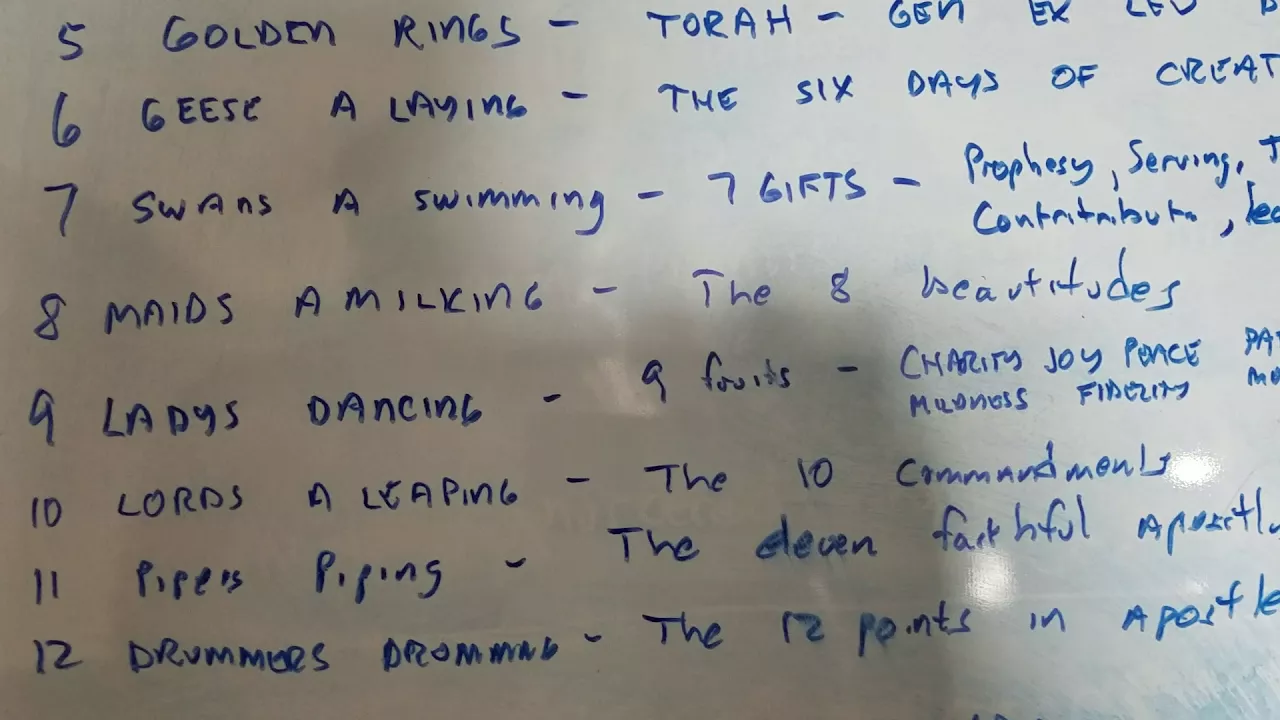 5 GOLDEN RINGS - TORAH - GEN EX LEV
6 GEESE A LAYING - THE SIX DAYS OF CREAT
7 SWANS A SWIMMING - 7 GIFTS - Prophesy, Serving, T
Contritributn, lea
8 MAIDS A MILKING - The 8 beautitudes
9 LADYS DANCING - 9 fruits - CHARITY JOY PEACE PAT
MILDNESS FIDELITY MO
10 LORDS A LEAPING - The 10 Commandments
11 PIPERS PIPING - The eleven faithful Apostl
12 DRUMMERS DRUMMING - The 12 points in Apostle